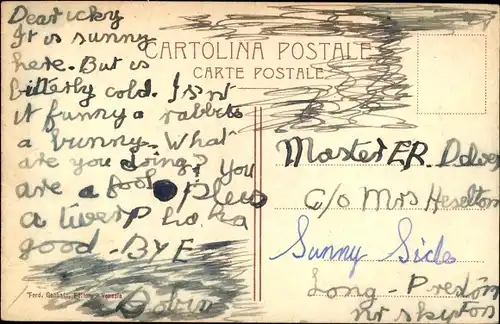 Dear icky
It is sunny
here. But is
bitterly cold. Isnt
it funny a rabbits
a bunny. What
are you doing? You
are a fool
a
good - BYE
Robin
CARTOLINA POSTALE
CARTE POSTALE
Master ER.
c/o Mrs Heselton
Sunny Side
Long - Preston
nr skipton
Ferd. Editore - Venezia